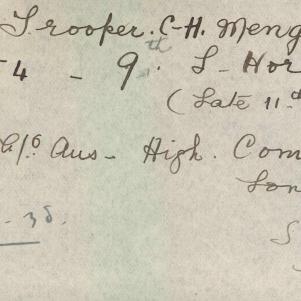 Trooper. C-H. Meng
54 - 9th. L- Hor
(Late 11
C/o Aus- High. Com
Lon
- 38.